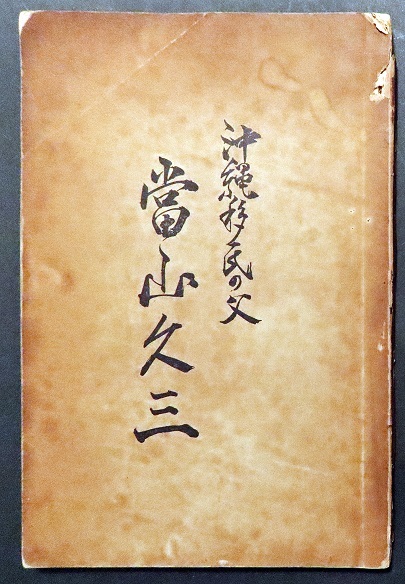 沖縄移民の父
當山久三